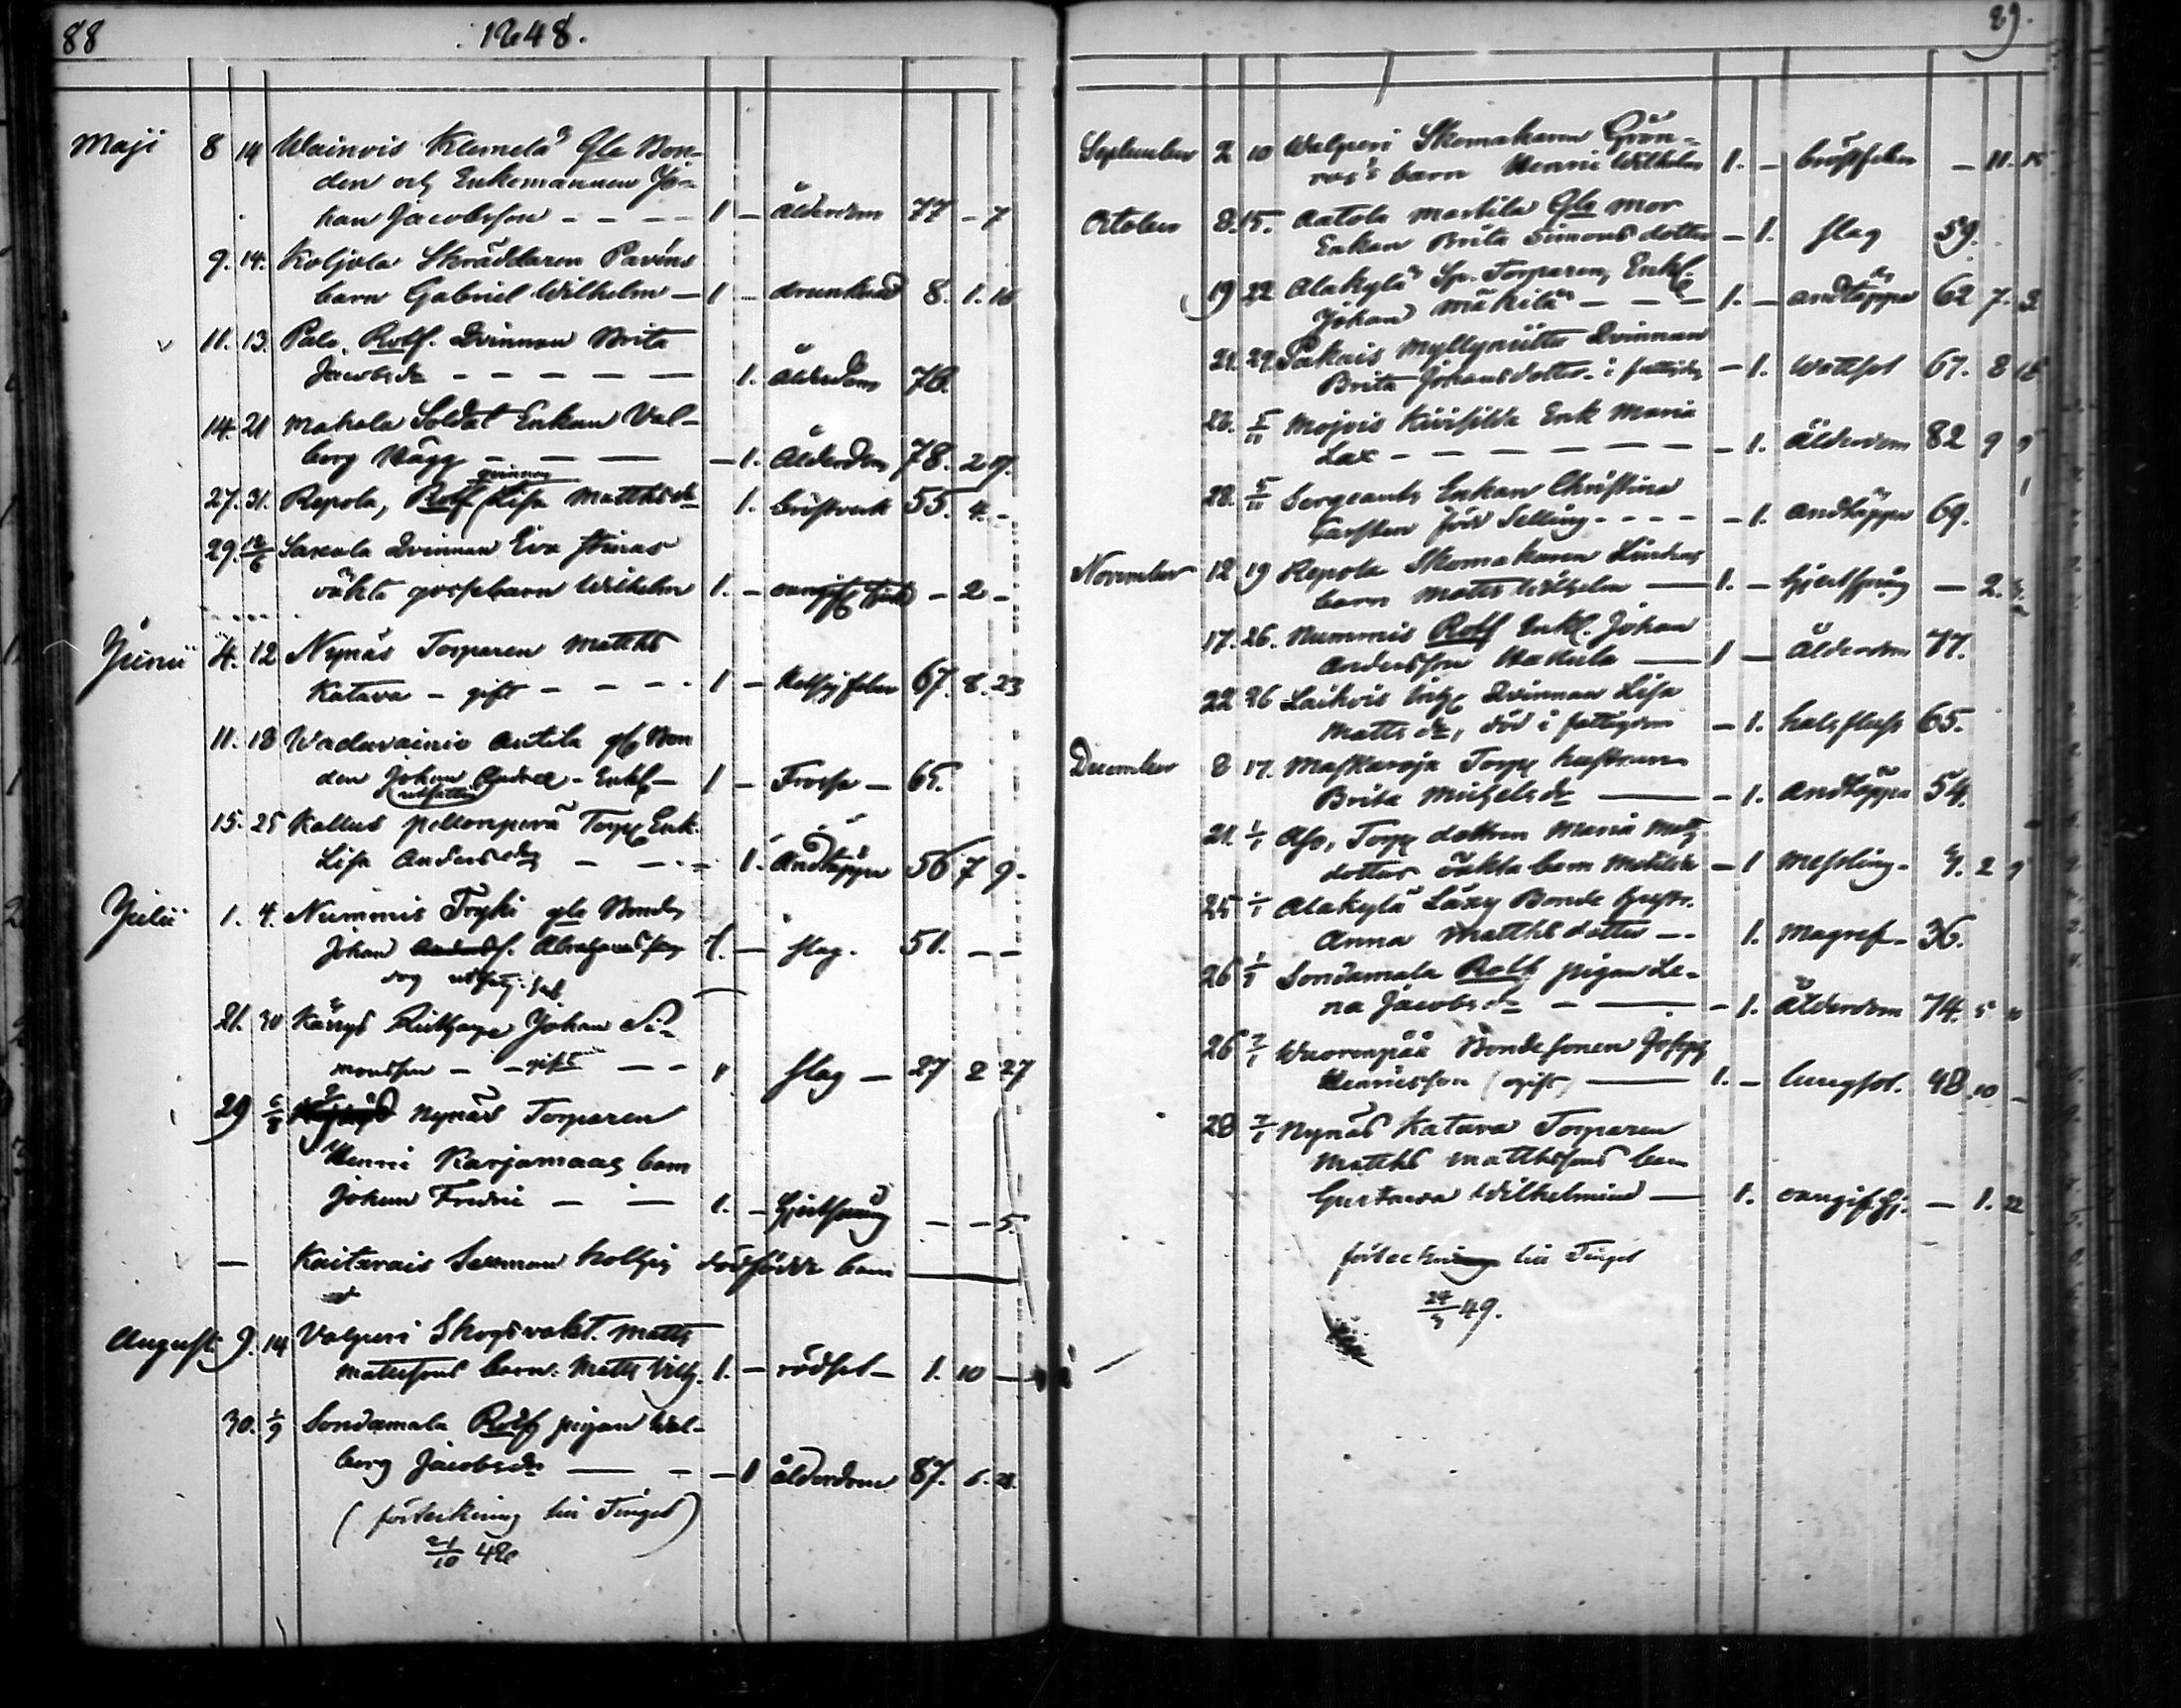 88 1848.
Maji 8 14 Wainois Klemelä Gle Bon-
den och Enkemannen Jo-
han Jacobsson - - - - 1 - Ålderdom 77 - 7
9. 14. Koljola Skräddaren Pavéns
barn Gabriel Wilhelm - 1 - drunknad 8. 1. 16
11. 13. Palo. Rotf. Qvinnan Brita
Jacobsdr - - - - - 1. Ålderdom 78.
14. 21 Mahala Soldat Enkan Val-
borg Wägg - - - - 1. Ålderdom 78. 2 17.
qvinnan
27. 31. Repola, Rotf Lisa Matthsdr 1. bröstverk 55. 4. -
29. 12/6 Saxala Qvinnan Eva Stinas
oäkta gossebarn Wilhelm 1. - - 2 -
Junii 4. 12 Nynäs Torparen Matths
Katava - gift - - - - 1 - feber 67. 8. 23
11. 18 Wadavainio Antila gl Bon
den Johan Andree - Enkl - 1 - Frossa - 65.
15. 25 Kallus pellonperä Torp Enk.
Lisa Andersdr - - - 1. Andtäppa 56 7 9.
Julii 1. 4. Nummis Tryki gle Bonde
Johan Abrahamsson 1. - slag. 51. - -
21. 30 Kärrys Johan Si-
monsson - - gift - - 1 slag - 27 2 27
29 6/8 Nynäs Torparen
Henric Karjamaas barn
Johan Fredric - - 1. - Hjertsprång - - 5.
- Kaitarais dödfödde barn
August 9. 14 Valperi Skogsvakt. Matts
Matssons barn. Matts Vilh. 1. - rödsot - 1. 10 -
30. 1/9 Sondamala Rotf pigan Wal-
borg Jacobsdr - - - 1 ålderdom 87. 6. 28.
(förteckning till Tinget)
21/10 48
89.
September 2 10 Walperi Skomakaren Grön-
roos's barn Henric Wilhelm 1. - bröstfeber - 11. 15
October 8. 15. Aatola Martila Gle mor
Enkan Brita Simonsdotter - 1. slag 59.
19 22 Alakylä Sp. Torparen, Enkl.
Johan Mäkilä - - - 1. - andtäppa 62 7. 3
21. 29. Pakais Myllyniitto Qvinnan
Brita Johansdotter. i fattigd - 1. Wattsot 67. 8 18
28. 5/11 Mojois Kivisilda Enk Maria
Lax - - - - - - - 1. Ålderdom 82 9 9
28. 5/11 Sergeants Enkan Christina
Carsten född Selling - - - - 1. andtäppa 69.
November 12 19 Repola Skomakaren Lindens
barn Matts Wilhelm - 1. - Hjertsprång - 2.
17. 26. Nummis Rotf Enkl. Johan
Andersson - 1 - Ålderdom 77.
22 26 Laihois Inh Qvinnan Lisa
Mattsdr, död i fattigdom - 1. halsfluss 65.
December 8 17. Maskaroja Torp hustrun
Brita Michelsdr - - 1. andtäppa 54.
21. 1/1 Torp dottren Maria Matts
dotters oäkta barn Matilda - 1 Messling. 2 9
25 1/1 Alakylä Läxy Bonde hustr.
Anna Matthsdotter - - 1. Magref - 36.
26 1/1 Sondamala Rotf pigan Le-
na Jacobsdr - - - 1. Ålderdom 74. 5
26 7/1 Wuorenpää Bondesonen Joseph
Henricsson (gift) - 1. - lungsot. 48. 10 -
28 7/1 Nynäs Katava Torparen
Matths Matthssons barn
Gustava Wilhelmina - 1. oangif. sj. - 1. 22
förteckning till Tinget
24/3 49.